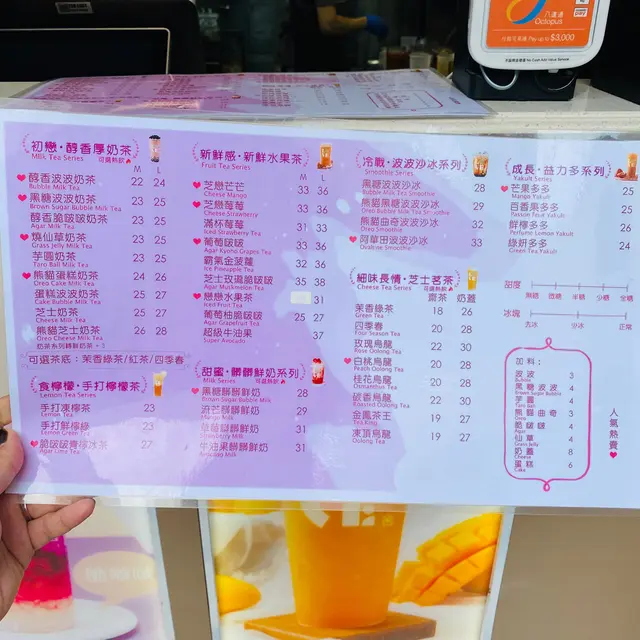 八達通
Octopus
$3,000
初戀・醇香厚奶茶
Milk Tea Series 可選熱飲
M L
醇香波波奶茶 22 24
Bubble Milk Tea
黑糖波波奶茶 23 25
Brown Sugar Bubble Milk Tea
醇香脆啵啵奶茶 23 25
Agar Milk Tea
燒仙草奶茶 23 25
Grass Jelly Milk Tea
芋圓奶茶 23 25
Taro Ball Milk Tea
熊貓蛋糕奶茶 24 26
Oreo Cake Milk Tea
蛋糕波波奶茶 25 27
Cake Bubble Milk Tea
芝士奶茶 25 27
Cheese Milk Tea
熊貓芝士奶茶 26 28
Oreo Cheese Milk Tea
可選茶底：茉香綠茶/紅茶/四季春
食檸檬・手打檸檬茶
Lemon Tea Series
手打凍檸茶 23
Lemon Tea
手打鮮檸綠 23
Lemon Green Tea
脆啵啵青檸冰茶 27
Agar Lime Tea
新鮮感・新鮮水果茶
Fruit Tea Series
M L
芝戀芒芒 33 36
Cheese Mango
芝戀莓莓 33 36
Cheese Strawberry
滿杯莓莓 31 33
Iced Strawberry Tea
葡萄啵啵 33 36
Agar Kyoho Grapes Tea
霸氣金菠蘿 32 35
Ice Pineapple Tea
芝士玫瓏脆啵啵 35 38
Agar Muskmelon Tea
戀戀水果茶 31
Iced Fruit Tea
葡萄柚脆啵啵 25 27
Agar Grapefruit Tea
超級牛油果 37
Super Avocado
甜蜜・髒髒鮮奶系列
Milk Series 可選熱飲
黑糖髒髒鮮奶 28
Brown Sugar Bubble Milk
流芒髒髒鮮奶 29
草莓髒髒鮮奶 31
Strawberry Milk
牛油果髒髒鮮奶 31
Avocado Milk
冷戰・波波沙冰系列
Smoothie Series
黑糖波波沙冰 28
Bubble Milk Tea Smoothie
熊貓黑糖波波沙冰 29
Oreo Bubble Milk Tea Smoothie
熊貓曲奇波波沙冰 32
Oreo Bubble Smoothie
阿華田波波沙冰 33
Ovaltine Smoothie
細味長情・芝士茗茶
Cheese Tea Series 齋茶 奶蓋
茉香綠茶 18 26
Green Tea
四季春 20 28
Four Season Tea
玫瑰烏龍 22 30
Rose Oolong Tea
白桃烏龍 20 28
Peach Oolong Tea
桂花烏龍 20 28
Osmanthus Tea
炭香烏龍 22 30
Roasted Oolong Tea
金鳳茶王 19 27
Tea King
凍頂烏龍 19 27
Oolong Tea
成長・益力多系列
Yakult Series
芒果多多 25
Mango Yakult
百香果多多 25
Passion Fruit Yakult
鮮檸多多 26
Perfume Lemon Yakult
綠妍多多 24
Green Tea Yakult
甜度
無糖 微糖 半糖 少糖 全糖
冰塊
去冰 少冰 正常
加料：
波波 3
Bubble
黑糖波波 4
Brown Sugar Bubble
芋圓 4
Taro Ball
熊貓曲奇 3
Oreo
脆啵啵 4
Agar
仙草 4
Grass
奶蓋 8
Cheese
蛋糕 6
Cake
人氣熱賣